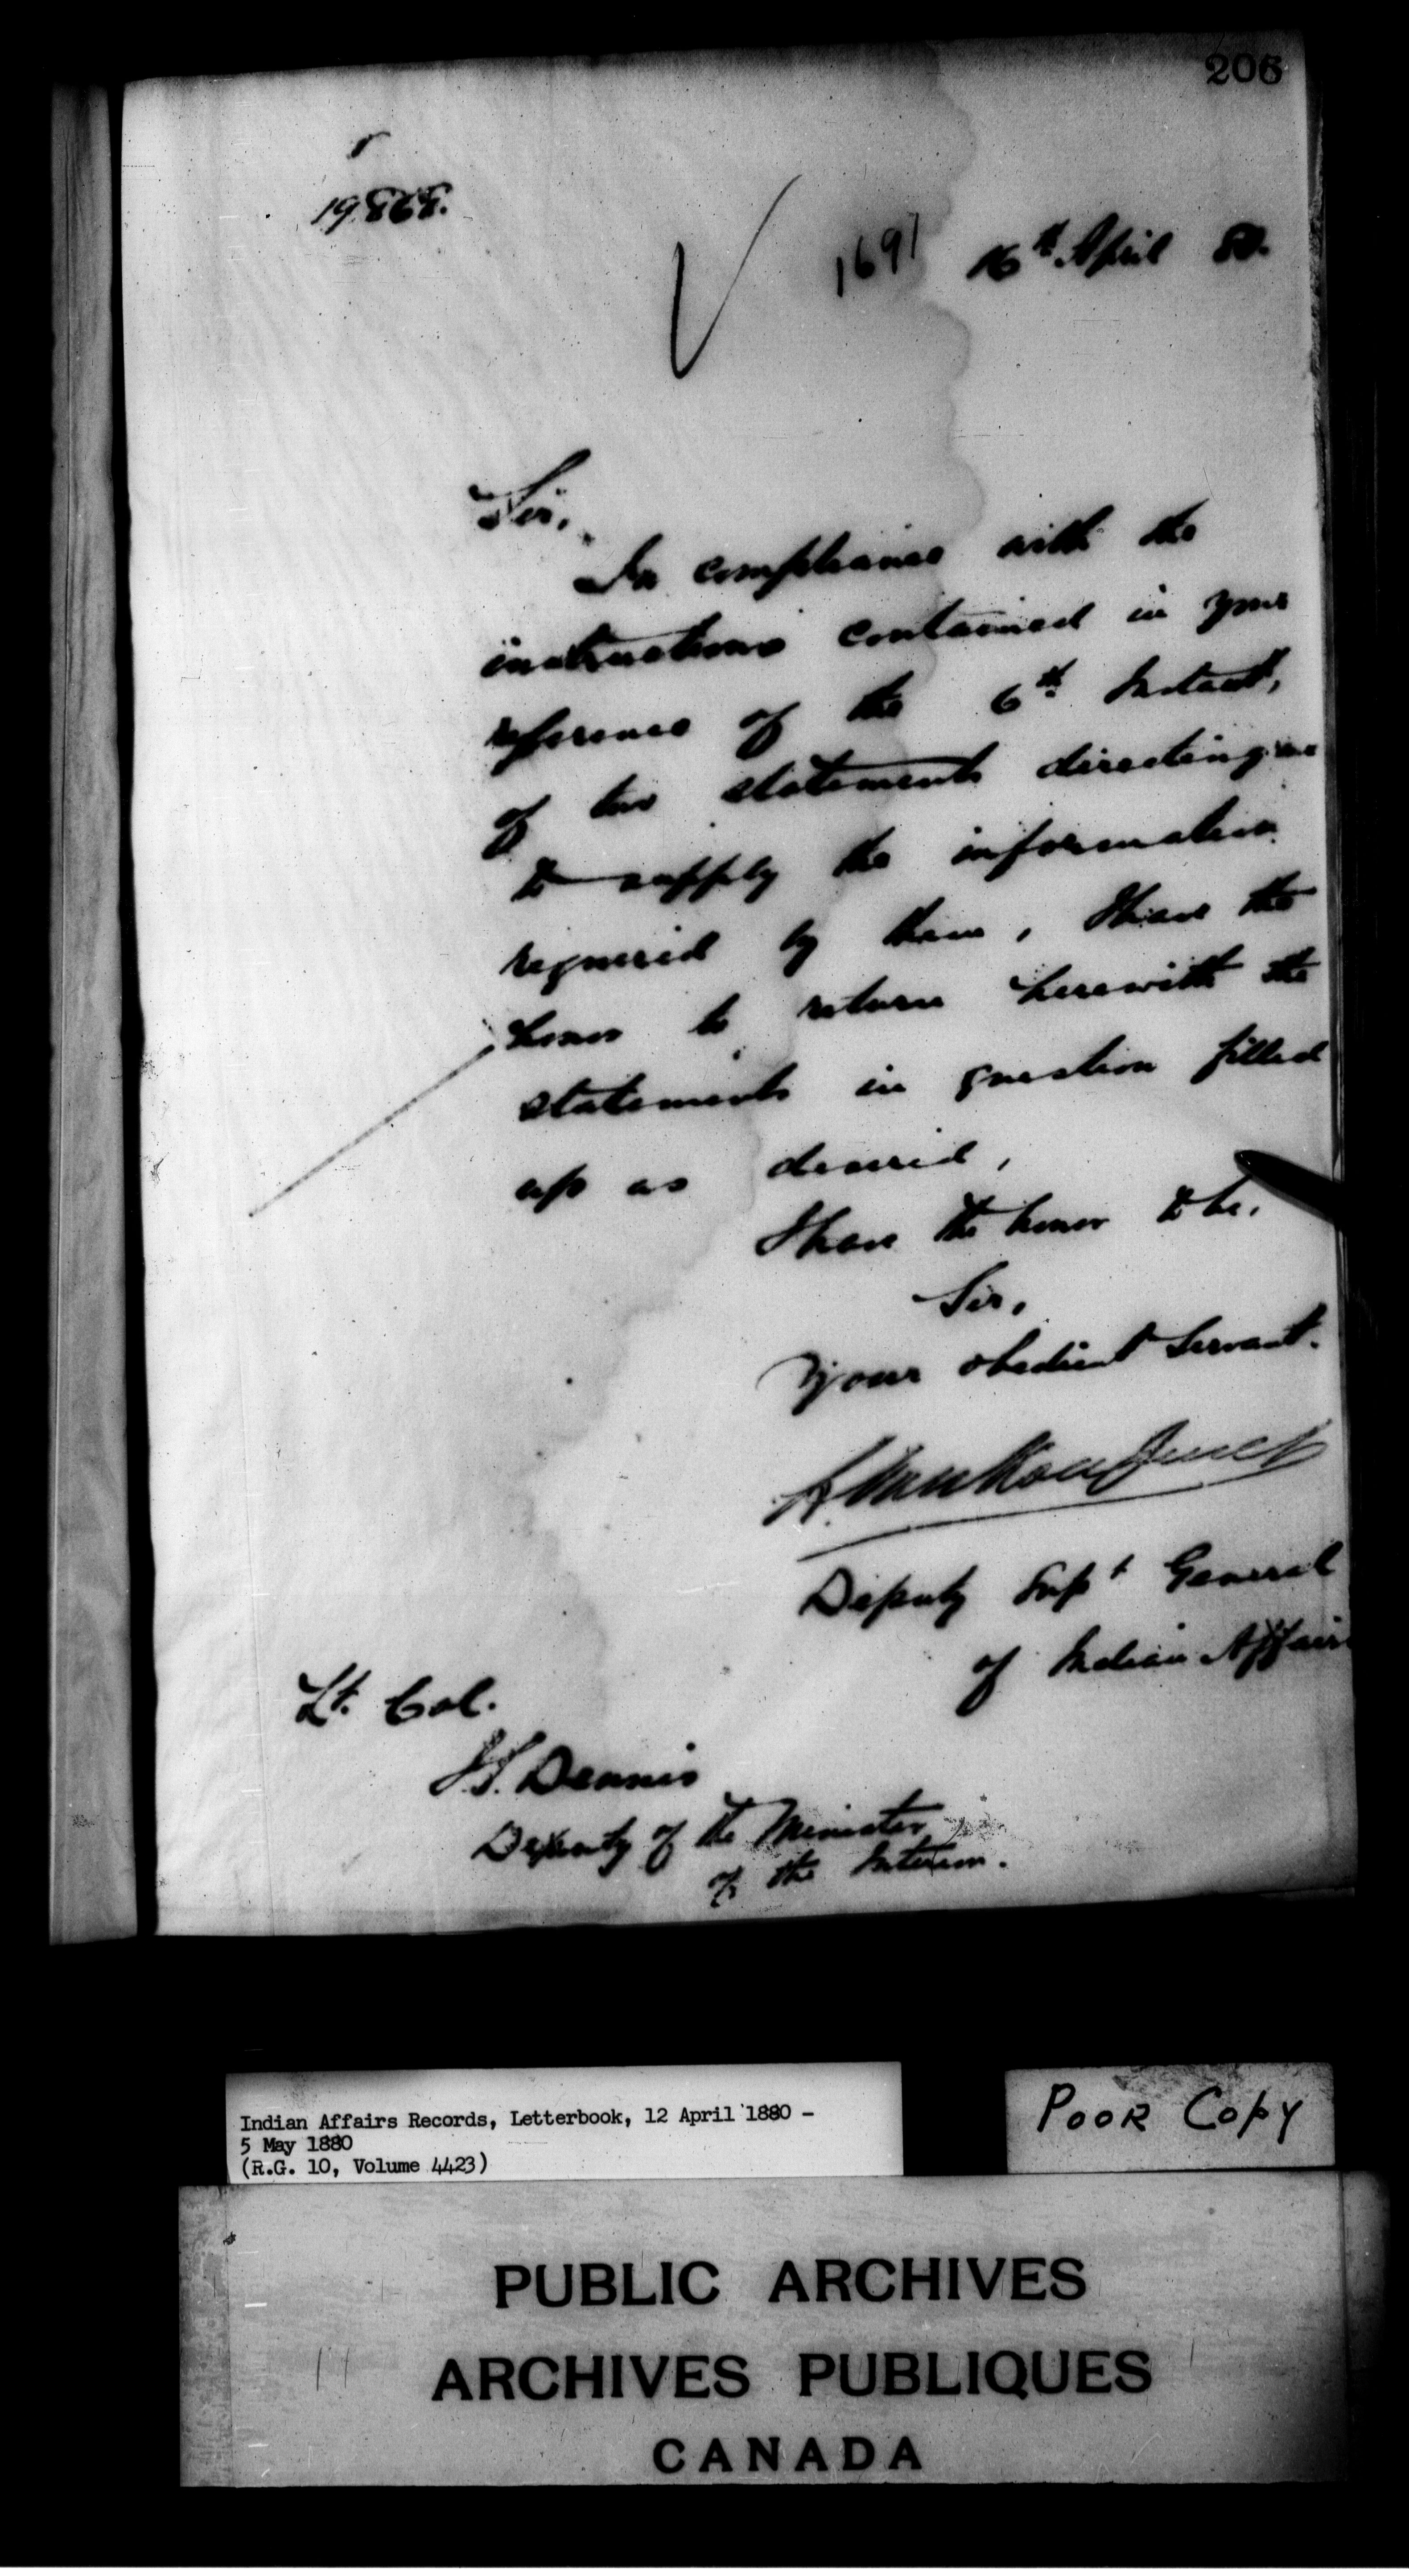 206
19.868.
1691 16th April 80.
Sir,
In compliance with the
instructions contained in your
reference of the 6th Instant,
of two statements directing me
to supply the information
required by them, I have the
honor to return herewith the
statements in question filled
up as desired,
I have the honor to be.
Sir,
Your obedient Servant.
L. VanKoughnet
Deputy Supt General
of Indian Affairs
Lt. Col.
J.S. Dennis
Deputy of the Minister
of the Interior.
Indian Affairs Records, Letterbook, 12 April 1880 -
5 May 1880
(R.G. 10, Volume 4423)
POOR COPY
PUBLIC ARCHIVES
ARCHIVES PUBLIQUES
CANADA